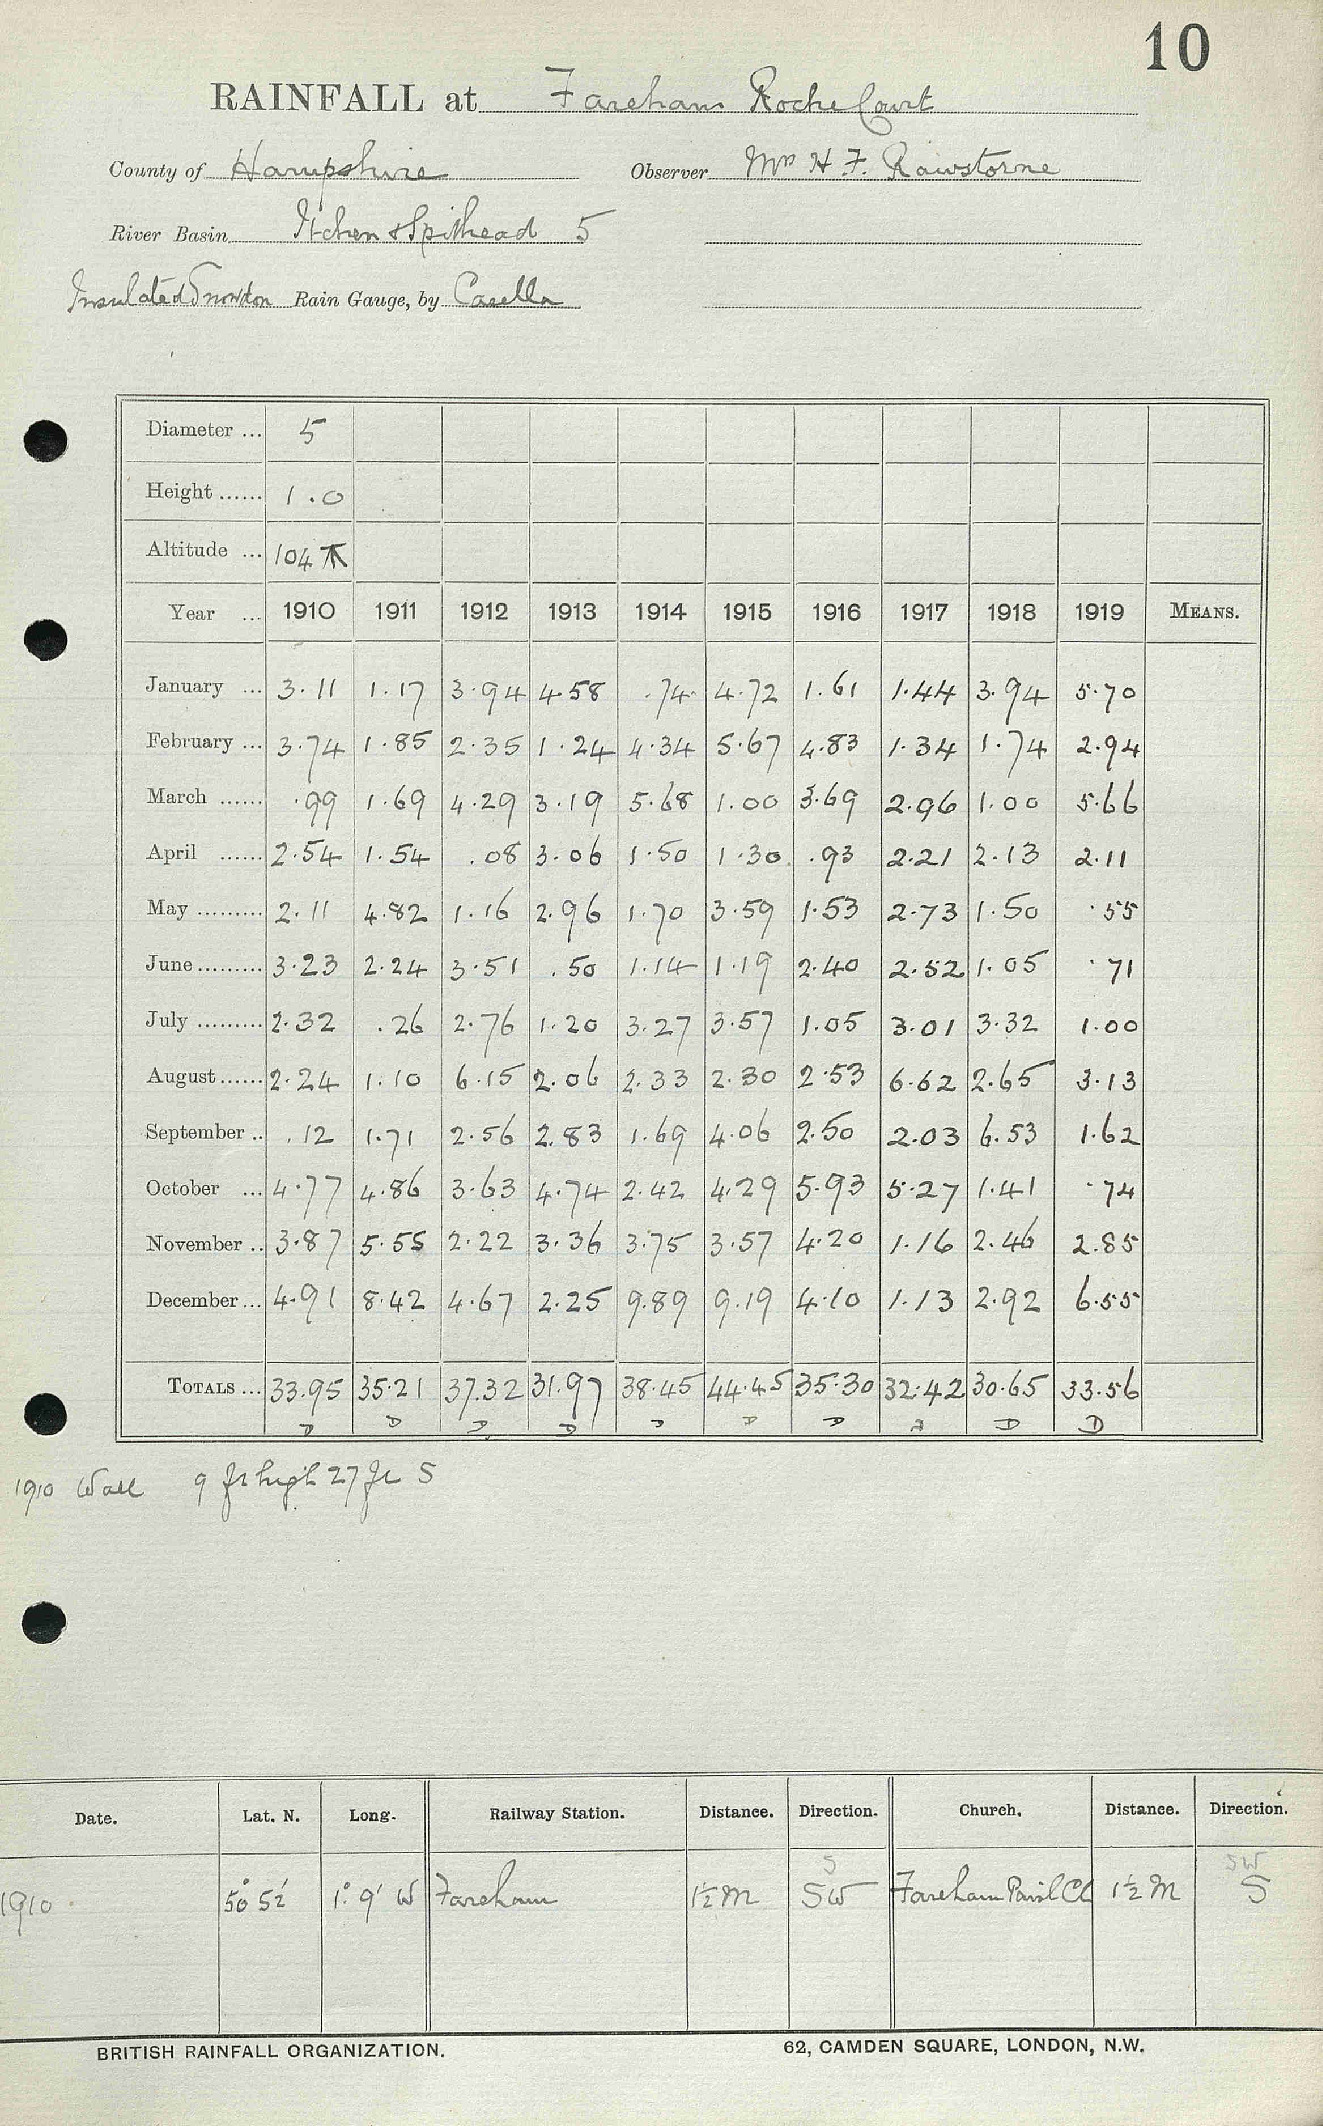 10
RAINFALL at Fareham Roche Court
County of Hampshire Observer Mrs H. F. Rawstorne
River Basin Itchen & Spithead 5
Insulated Snowdon Rain Gauge, by Casella
Diameter ... 5
Height ...... 1.0
Altitude ... 104
Year ... 1910 1911 1912 1913 1914 1915 1916 1917 1918 1919 MEANS.
January ... 3.11 1.17 3.94 4.58 .74 4.72 1.61 1.44 3.94 5.70
February ... 3.74 1.85 2.35 1.24 4.34 5.67 4.83 1.34 1.74 2.94
March ...... .99 1.69 4.29 3.19 5.68 1.00 3.69 2.96 1.00 5.66
April ...... 2.54 1.54 .08 3.06 1.50 1.30 .93 2.21 2.13 2.11
May ......... 2.11 4.82 1.16 2.96 1.70 3.59 1.53 2.73 1.50 .55
June ......... 3.23 2.24 3.51 .50 1.14 1.19 2.40 2.52 1.05 .71
July ......... 2.32 .26 2.76 1.20 3.27 3.57 1.05 3.01 3.32 1.00
August ...... 2.24 1.10 6.15 2.06 2.33 2.30 2.53 6.62 2.65 3.13
September .. .12 1.71 2.56 2.83 1.69 4.06 2.50 2.03 6.53 1.62
October ... 4.77 4.86 3.63 4.74 2.42 4.29 5.93 5.27 1.41 .74
November .. 3.87 5.55 2.22 3.36 3.75 3.57 4.20 1.16 2.46 2.85
December ... 4.91 8.42 4.67 2.25 9.89 9.19 4.10 1.13 2.92 6.55
TOTALS ... 33.95 35.21 37.32 31.97 38.45 44.45 35.30 32.42 30.65 33.56
D D D D D D D D D
1910 Wall 9 ft high 27 ft S
Date. Lat. N. Long. Railway Station. Distance. Direction. Church. Distance. Direction.
S SW
1910. 50° 52' 1° 9' W Fareham 1½ M SW Fareham Ch 1½ M S
BRITISH RAINFALL ORGANIZATION. 62, CAMDEN SQUARE, LONDON, N.W.